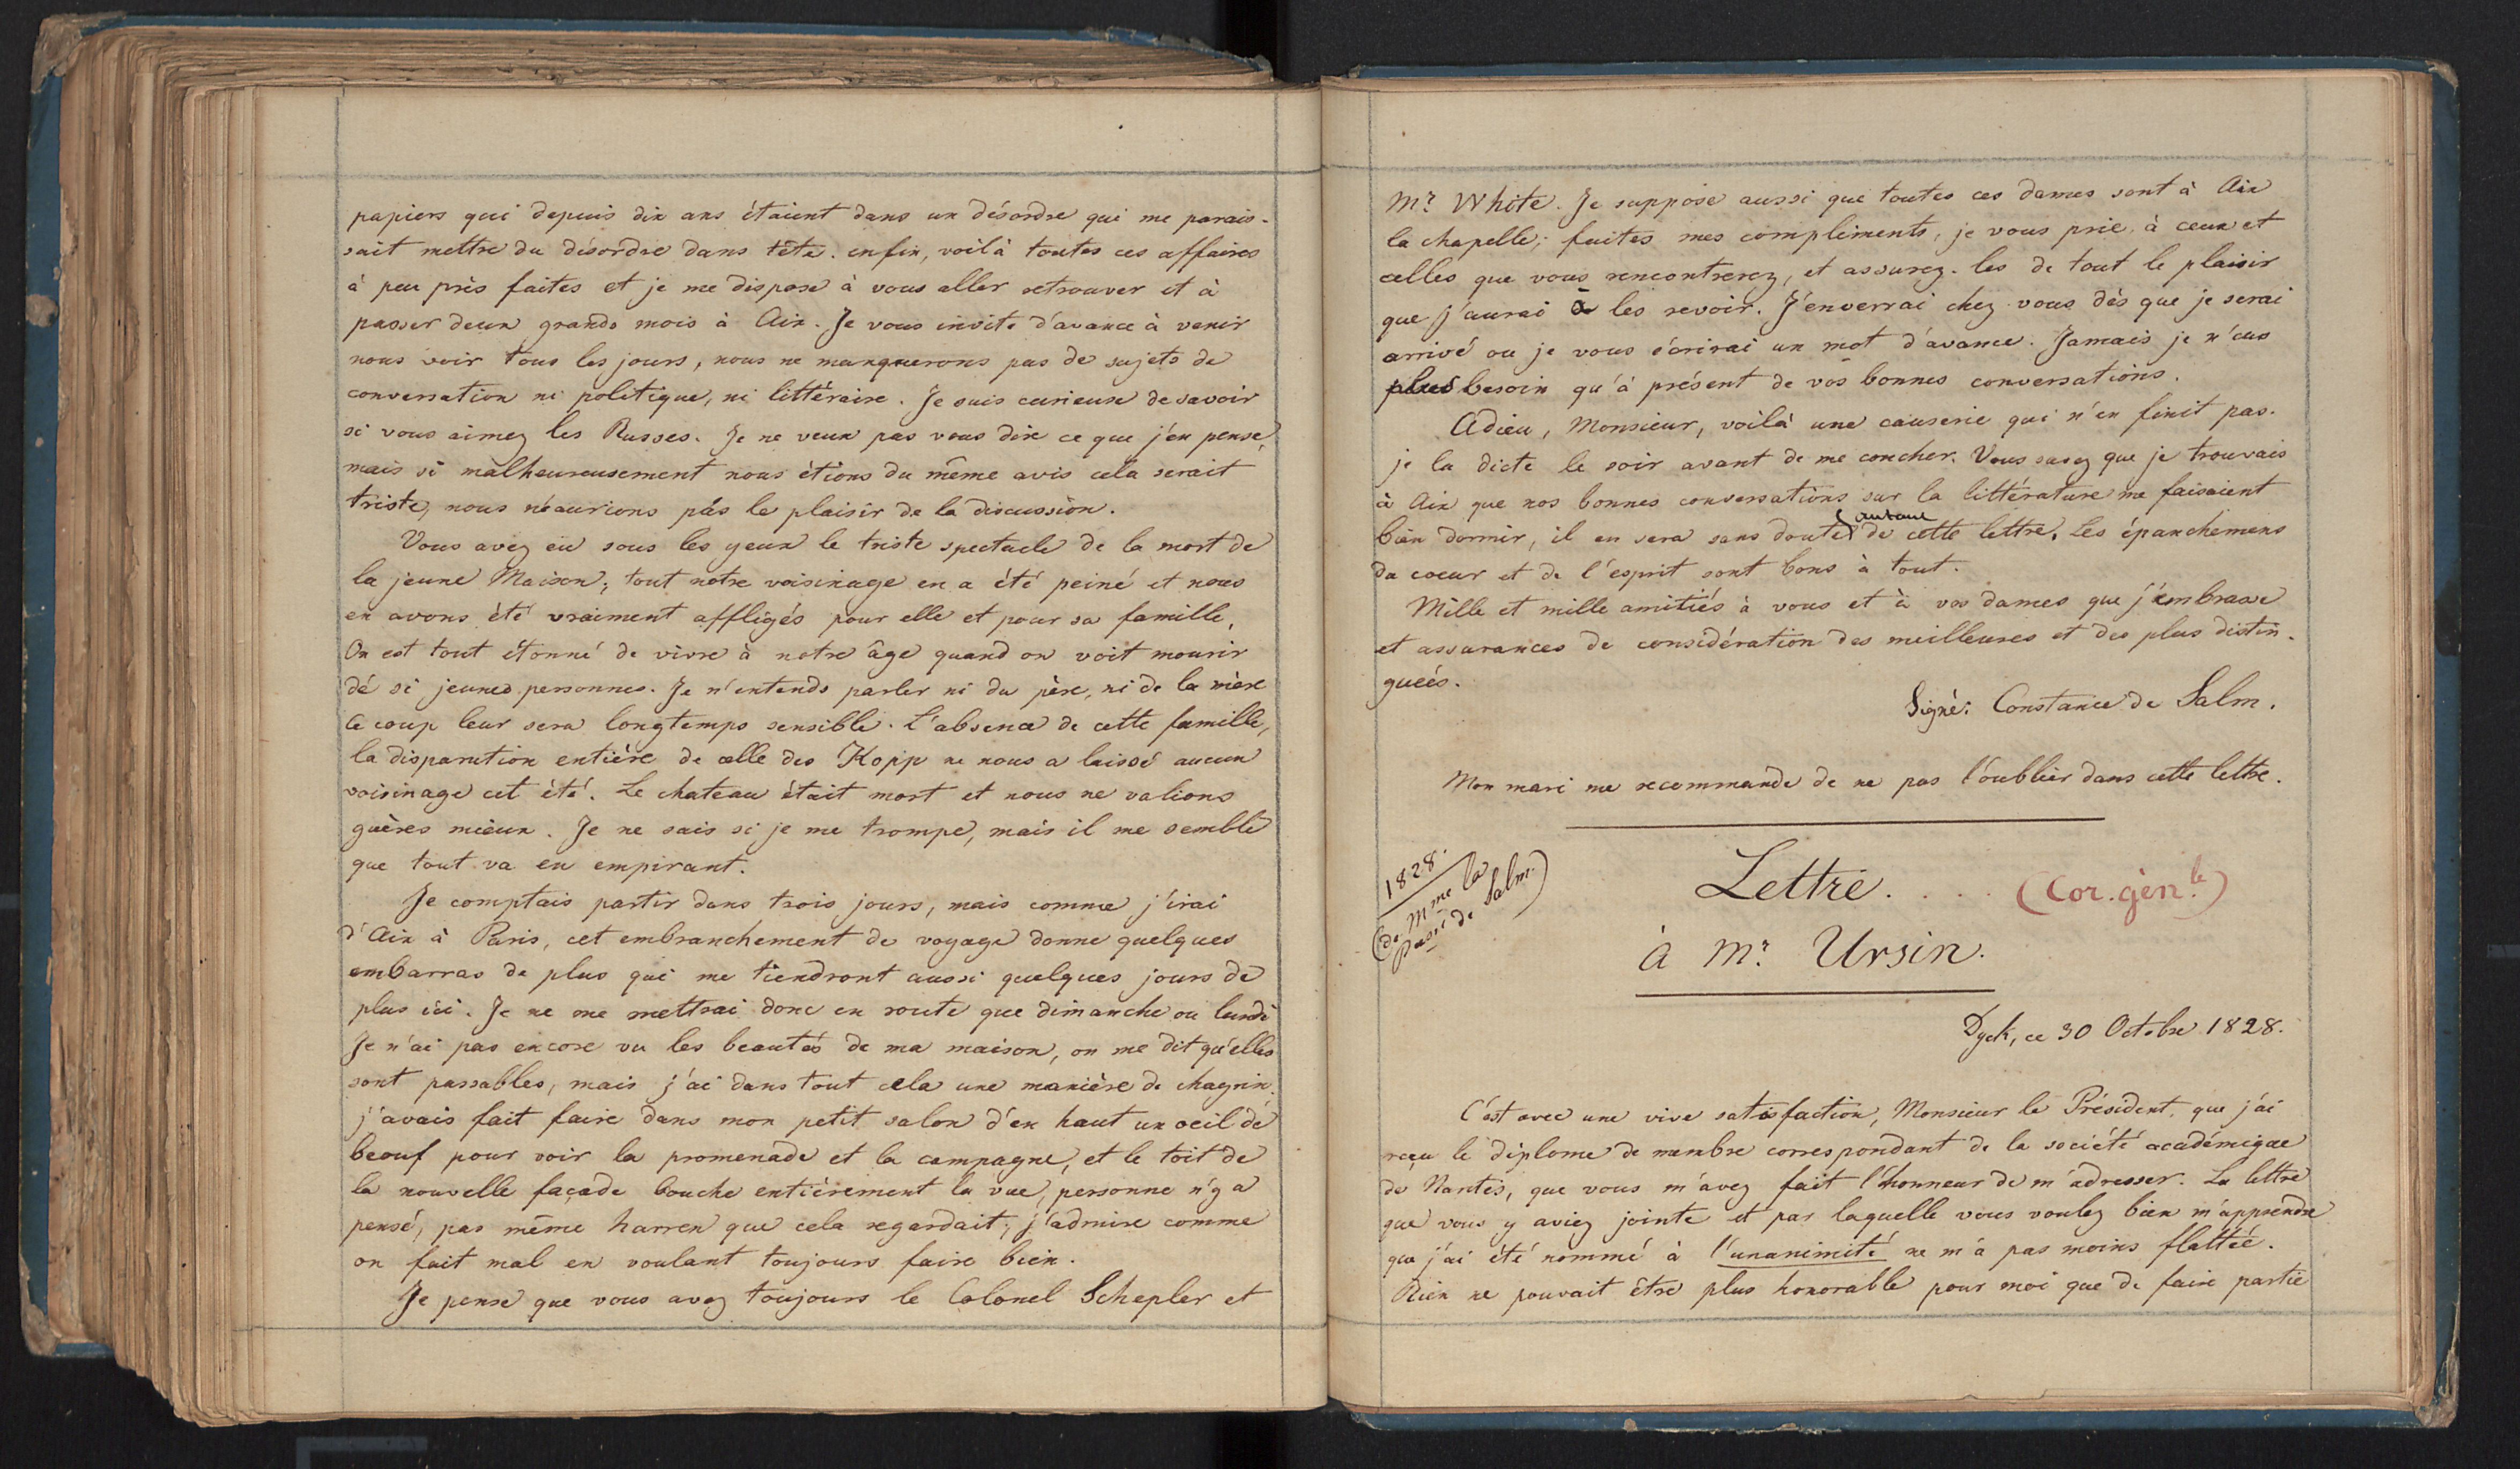 papiers qui depuis dix ans étaient dans un désordre qui me parais-
sait mettre du désordre dans tête. enfin, voilà toutes ces affaires
à peu près faites et je me dispose à vous aller retrouver et à
passer deux grands mois à Aix. Je vous invite d'avance à venir
nous voir tous les jours, nous ne manquerons pas de sujets de
conversation ni politique, ni littéraire. Je suis curieuse de savoir
si vous aimez les Russes. Je ne veux pas vous dire ce que j'en pense,
mais si malheureusement nous étions du même avis cela serait
triste, nous n'aurions pas le plaisir de la discussion.
Vous avez eu sous les yeux le triste spectacle de la mort de
la jeune Maison; tout notre voisinage en a été peiné et nous
en avons été vraiment affligés pour elle et pour sa famille.
On est tout étonné de vivre à notre âge quand on voit mourir
dé si jeunes personnes. Je n'entends parler ni du père, ni de la mère
ce coup leur sera longtemps sensible. L'absence de cette famille,
la disparution entière de celle des Kopp ne nous a laissé aucun
voisinage cet été. Le chateau était mort et nous ne valions
guères mieux. Je ne sais si je me trompe, mais il me semble
que tout va en empirant.
Je comptais partir dans trois jours, mais comme j'irai
d'Aix à Paris, cet embranchement de voyage donne quelques
embarras de plus qui me tiendront aussi quelques jours de
plus ici. Je ne me mettrai donc en route que dimanche ou lundi
Je n'ai pas encore vu les beautés de ma maison, on me dit qu'elles
sont passables, mais j'ai dans tout cela une manière de chagrin.
j'avais fait faire dans mon petit salon d'en haut un oeil de
beouf pour voir la promenade et la campagne, et le toit de
la nouvelle façade bouche entiérement la vue, personne n'y a
pensé, pas même harren que cela regardait; j'admire comme
on fait mal en voulant toujours faire bien.
Je pense que vous avez toujours le Colonel Schepler et
Mr. White. Je suppose aussi que toutes ces dames sont à Aix
la chapelle; faites mes compliments, je vous prie, à ceux et
celles que vous rencontrerez, et assurez-les de tout le plaisir
que j'aurai à les revoir. J'enverrai chez vous dès que je serai
arrivé ou je vous écrirai un mot d'avance. Jamais je n'eus
plus besoin qu'à présent de vos bonnes conversations.
Adieu, Monsieur, voilà une causerie qui n'en finit pas.
je la dicte le soir avant de me coucher. Vous savez que je trouvais
à Aix que nos bonnes conversations sur la littérature me faisaient
autant
bien dormir, il en sera sans doute de cette lettre. Les épanchemens
du coeur et de l'esprit sont bons à tout.
Mille et mille amitiés à vous et à vos dames que j'embrasse
et assurances de considération des meilleures et des plus distin-
guées.
Signé: Constance de Salm.
Mon mari me recommande de ne pas l'oublier dans cette lettre.
1828.
(de Mme la
Psse de Salm.)
Lettre. . . . (Cor. gèn.le)
à Mr. Ursin.
Dyck, ce 30 Octobre 1828.
C'est avec une vive satisfaction, Monsieur le Président, que j'ai
reçu le diplome de membre correspondant de la société académique
de Nantes, que vous m'avez fait l'honneur de m'adresser. La lettre
que vous y aviez jointe et par laquelle vous voulez bien m'apprendre
que j'ai été nommé à l'unanimité ne m'a pas moins flattée.
Rien ne pouvait être plus honorable pour moi que de faire partie